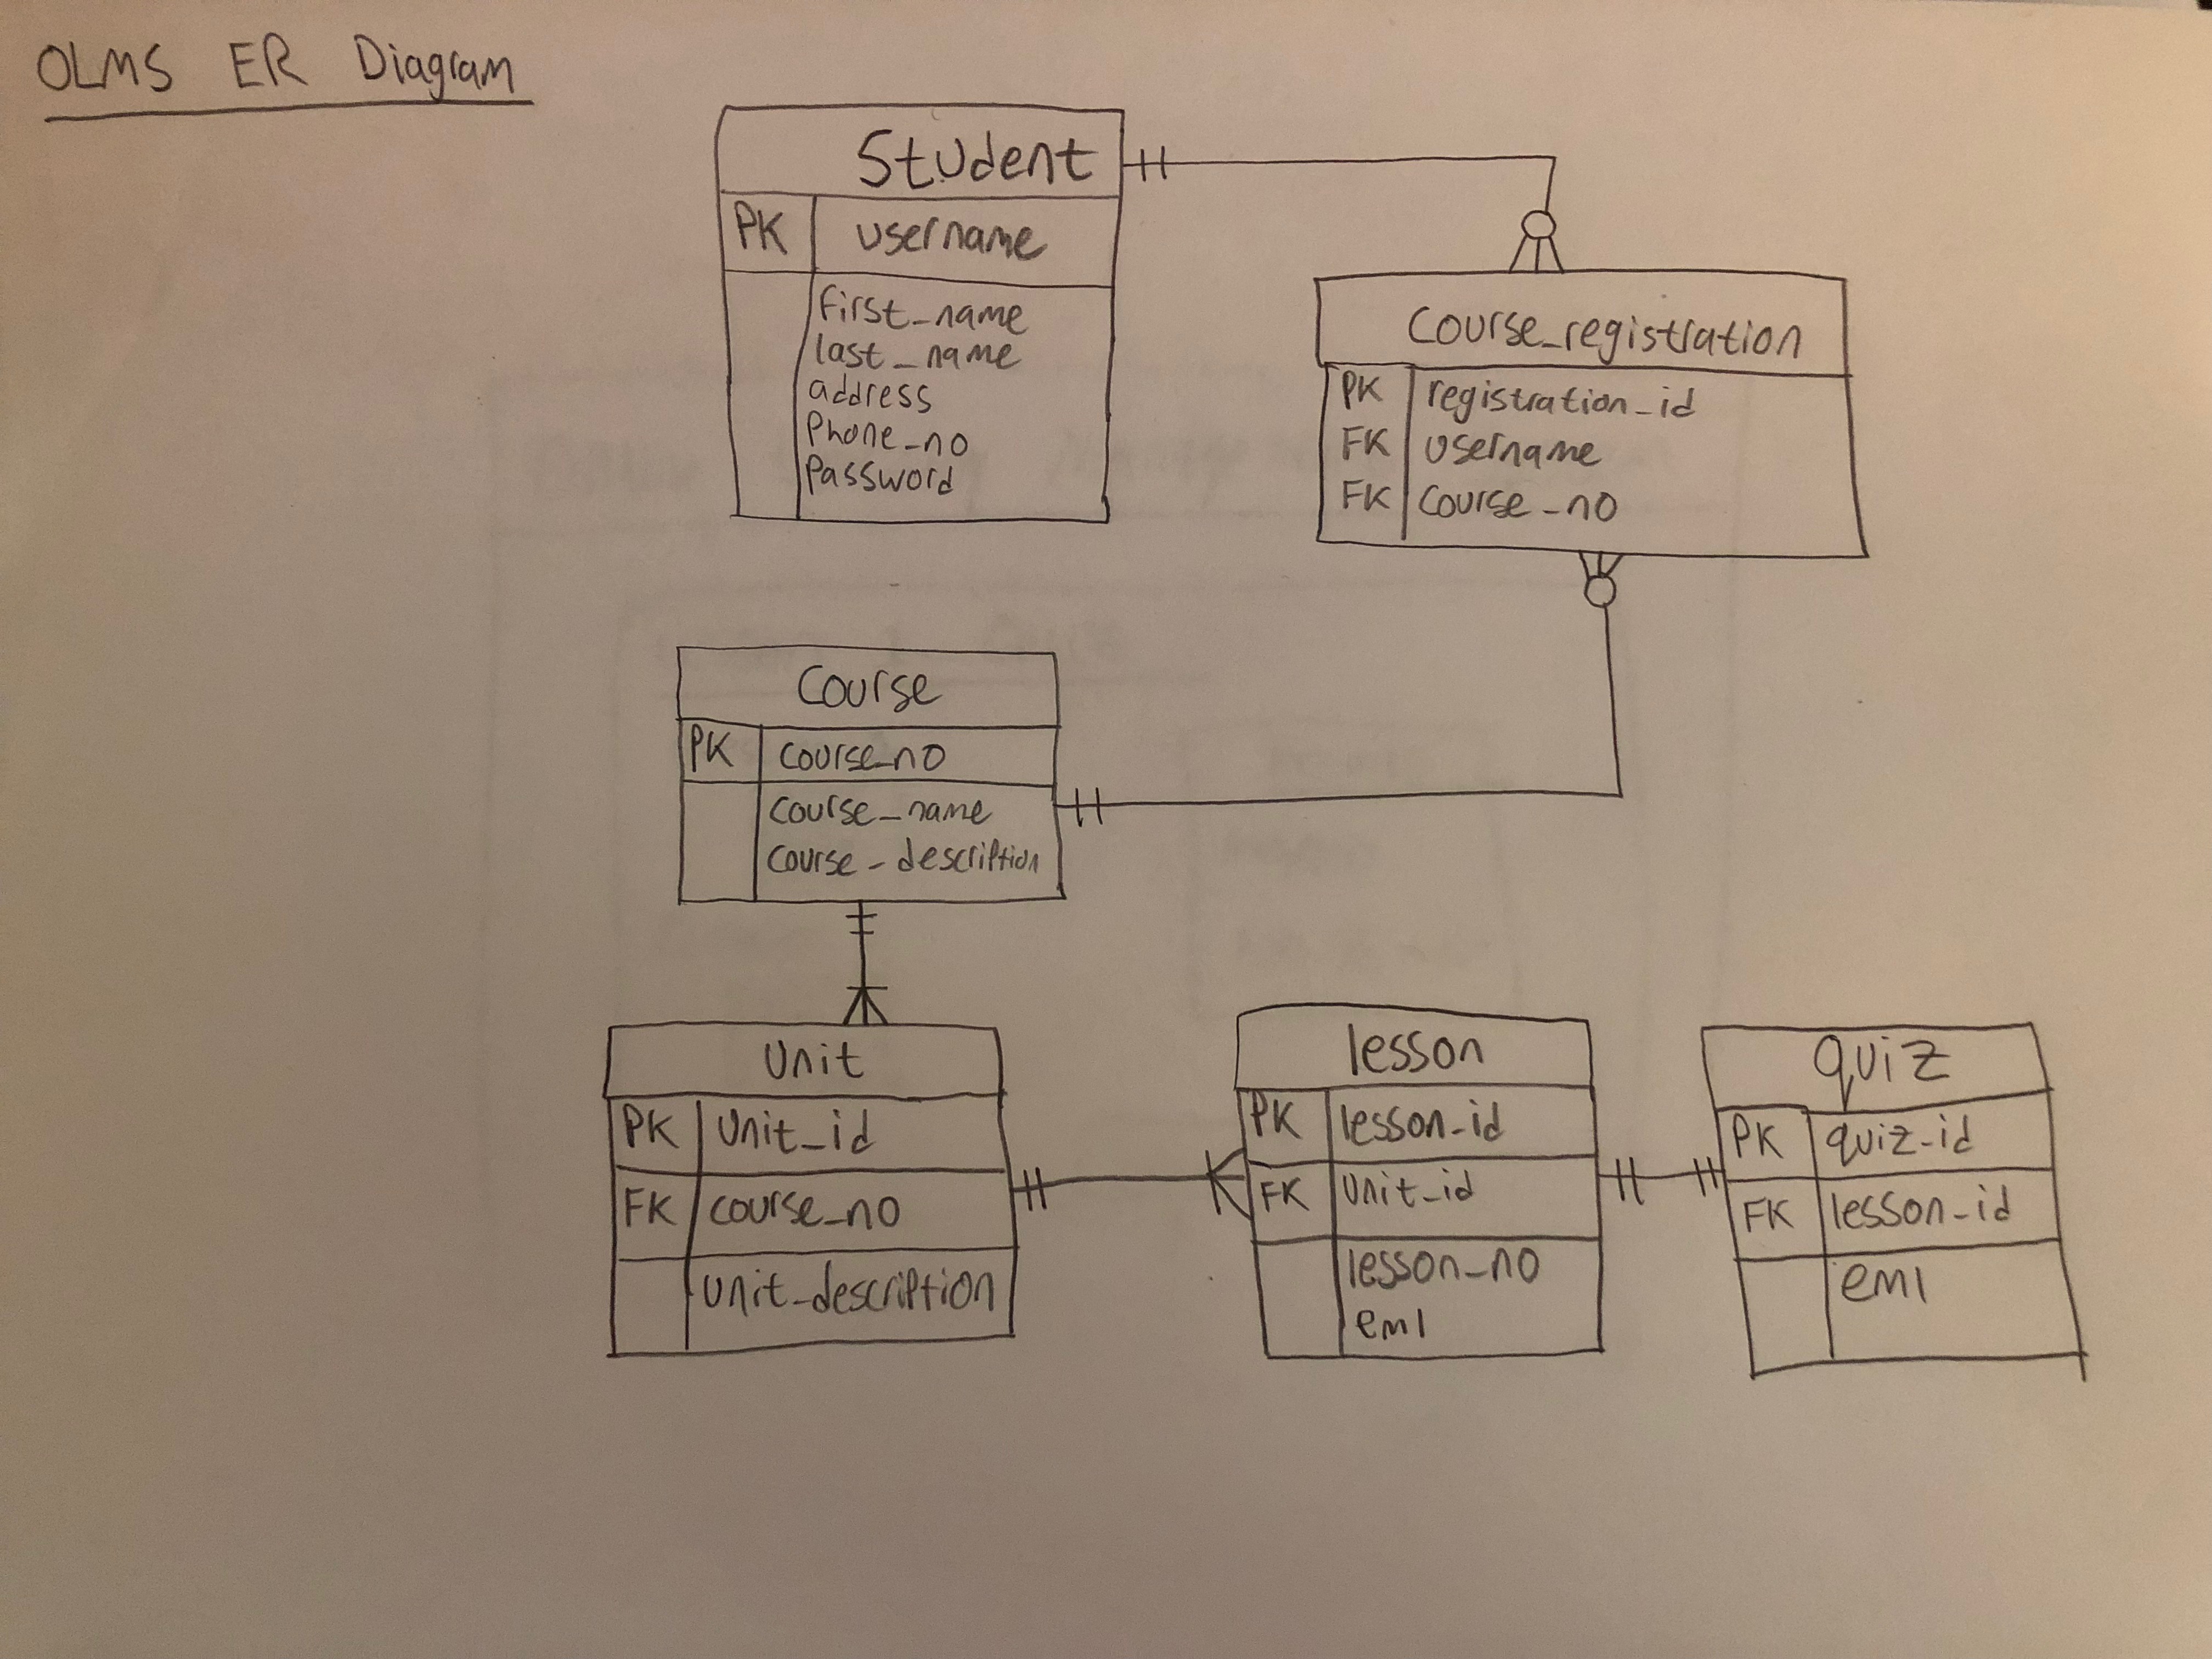 OLMS ER Diagram
Student
PK username
first_name
last_name
address
Phone_no
Password
Course_registration
PK registration_id
FK username
FK Course_no
Course
PK course_no
course_name
course_description
Unit
PK Unit_id
FK course_no
unit_description
lesson
PK lesson_id
FK Unit_id
lesson_no
eml
quiz
PK quiz_id
FK lesson_id
eml